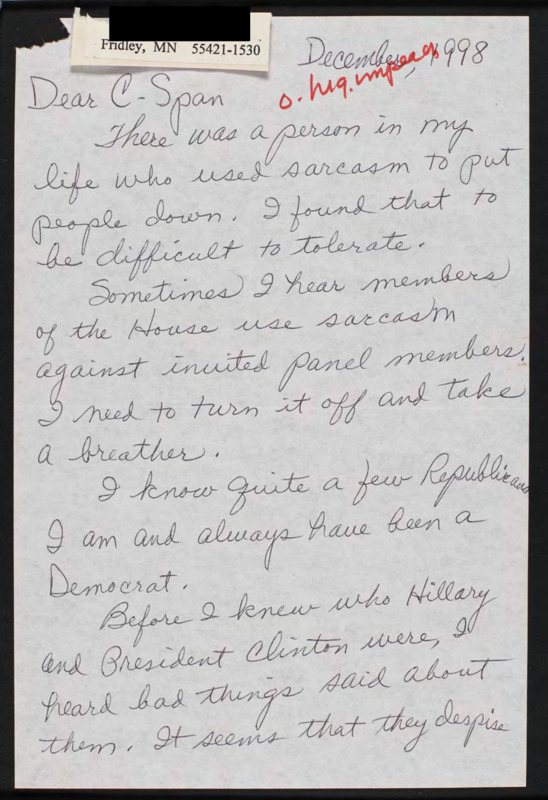 Fridley, MN 55421-1530
December, 1998
o. hrg. impeach
Dear C-Span
There was a person in my
life who used sarcasm to put
people down. I found that to
be difficult to tolerate.
Sometimes I hear members
of the House use sarcasm
against invited panel members.
I need to turn it off and take
a breather.
I know quite a few Republicans
I am and always have been a
Democrat.
Before I knew who Hillary
and President Clinton were, I
heard bad things said about
them. It seems that they despise